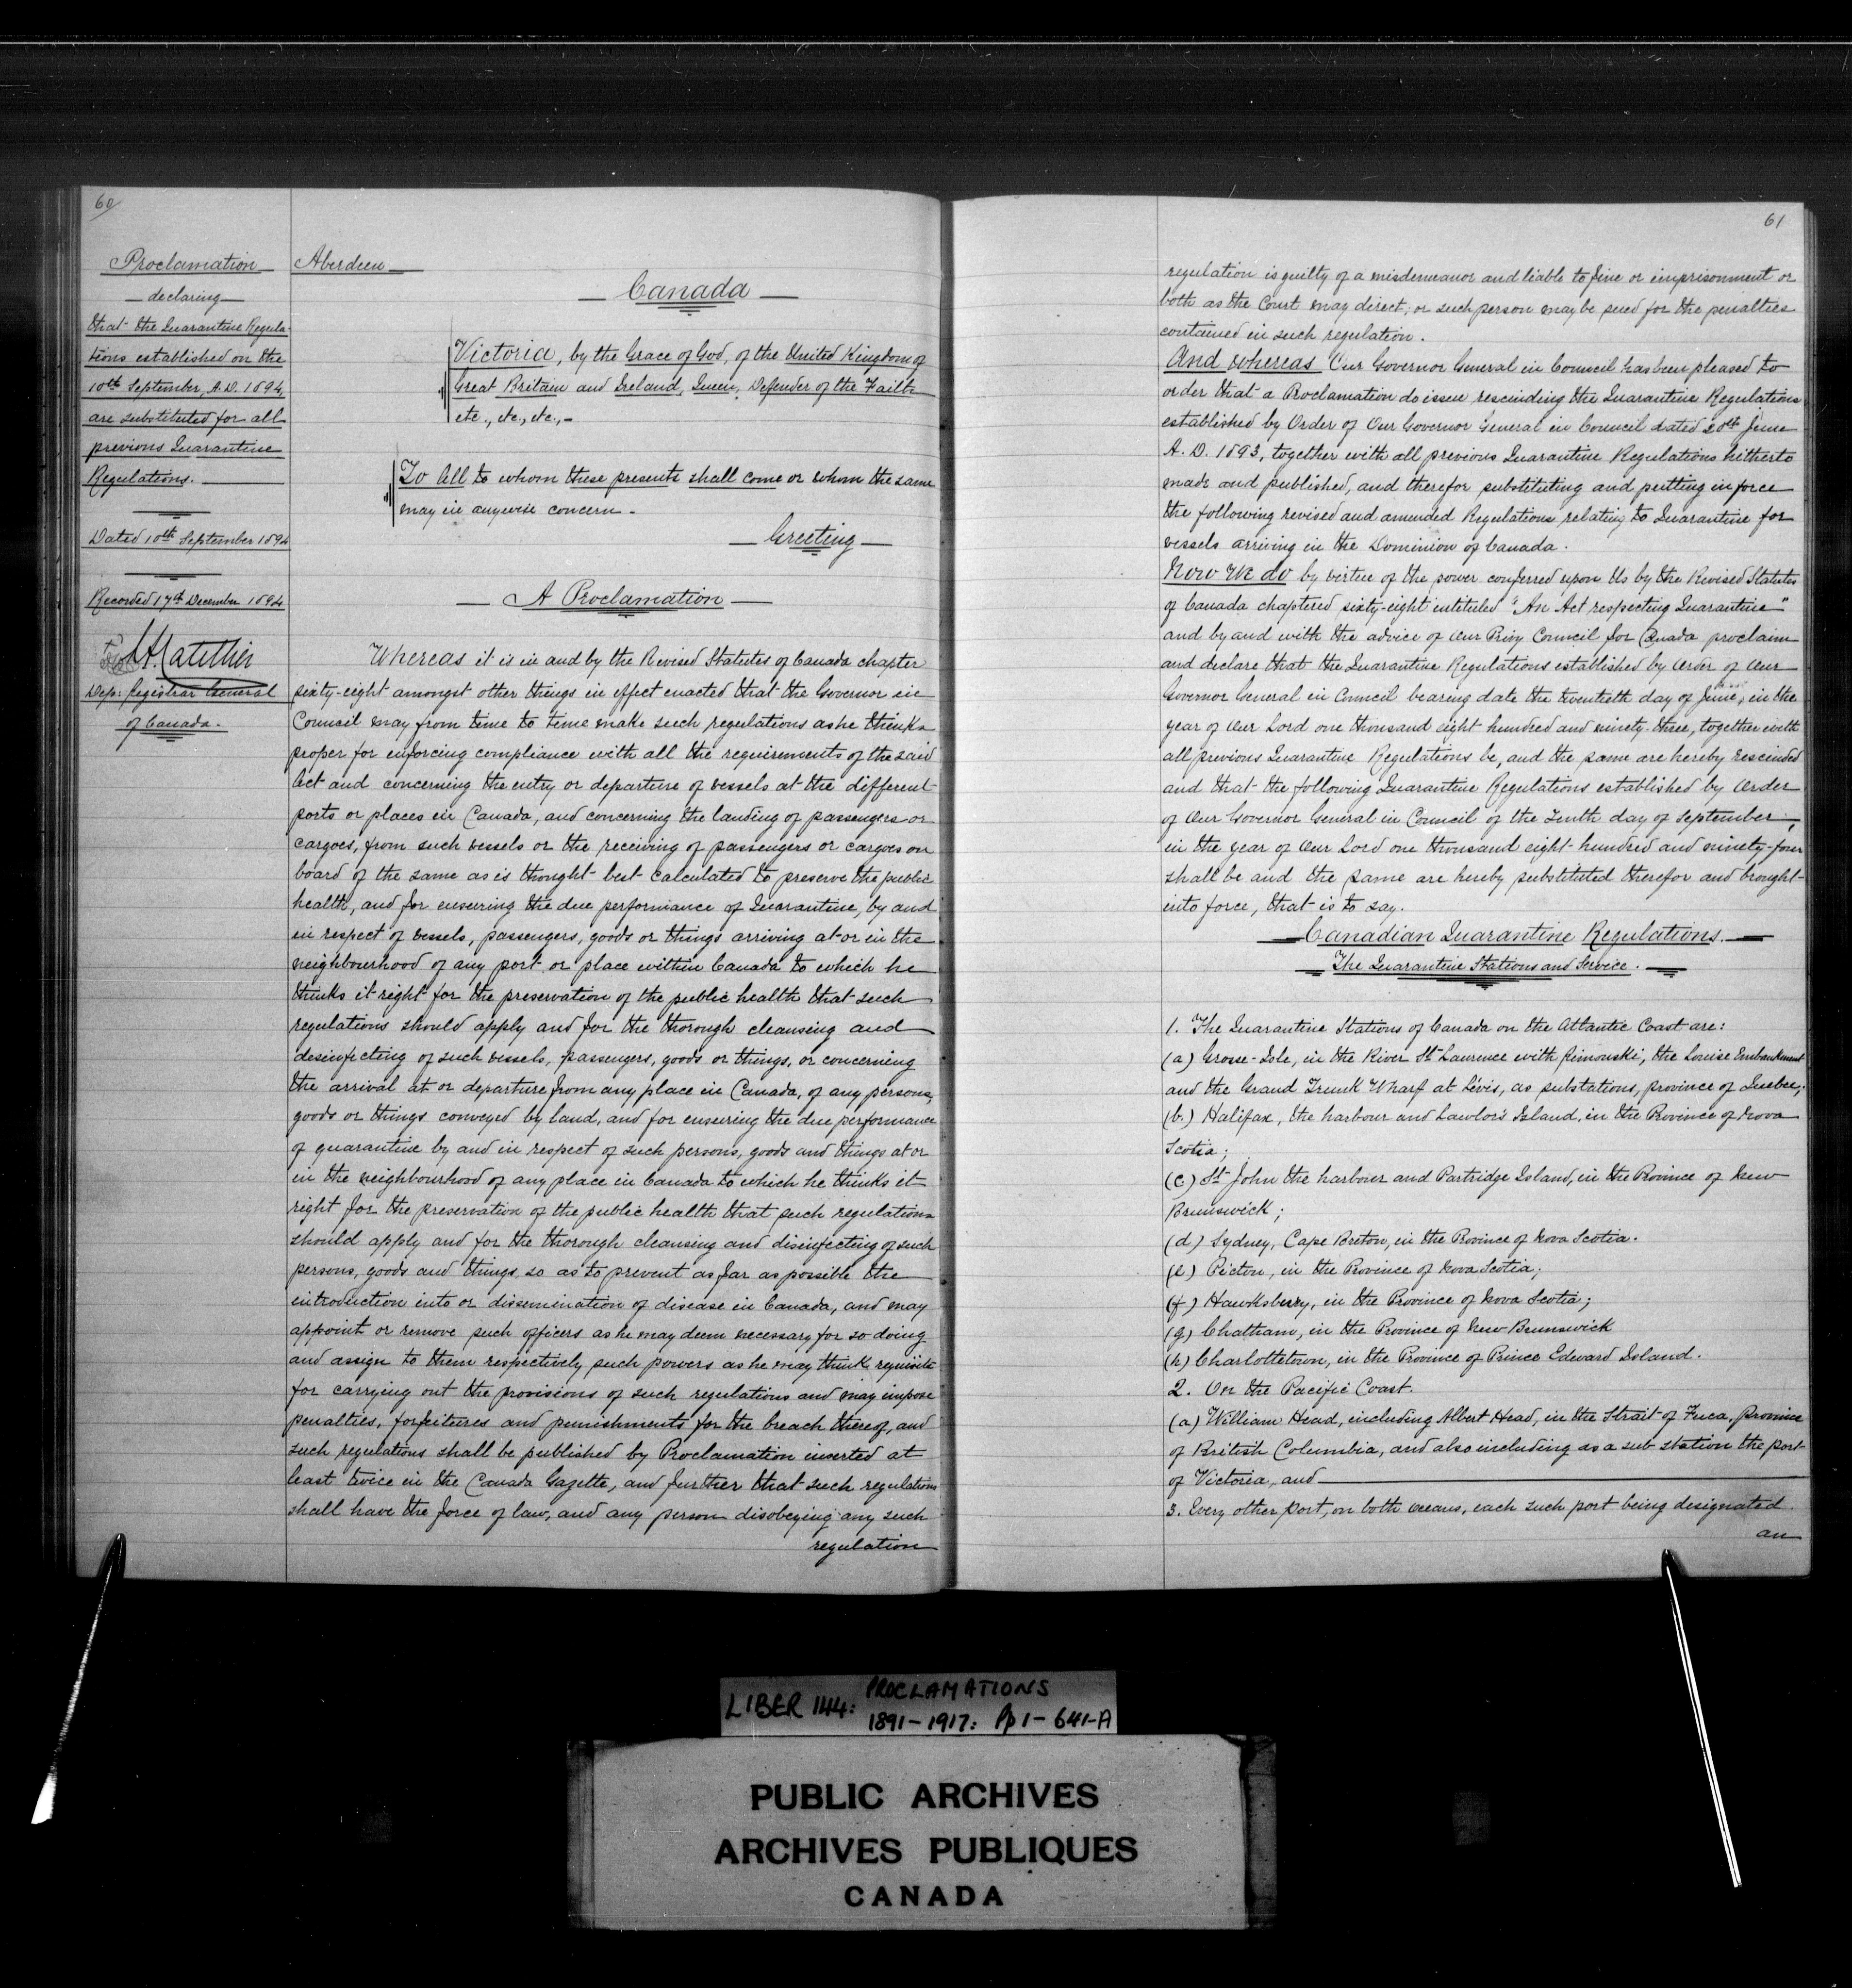 60
Proclamation
declaring
that the Quarantine Regula-
tions established on the
10th September, A.D. 1894,
are substituted for all
previous Quarantine
Regulations.
Dated 10th September 1894
Recorded 17th December 1894
Dep: Registrar General
of Canada.
Aberdeen
Canada
Victoria, by the Grace of God, of the United Kingdom of
Great Britain and Ireland, Queen, Defender of the Faith
etc., etc., etc.,
To All to whom these presents shall come or whom the same
may in anywise concern.
Greeting
A Proclamation
Whereas it is in and by the Revised Statutes of Canada chapter
sixty-eight amongst other things in effect enacted that the Governor in
Council may from time to time make such regulations as he thinks
proper for enforcing compliance with all the requirements of the said
Act and concerning the entry or departure of vessels at the different
ports or places in Canada, and concerning the landing of passengers or
cargoes, from such vessels or the receiving of passengers or cargoes on
board of the same as is thought best calculated to preserve the public
health, and for ensuring the due performance of Quarantine, by and
in respect of vessels, passengers, goods or things arriving at or in the
neighbourhood of any port or place within Canada to which he
thinks it right for the preservation of the public health that such
regulations should apply and for the thorough cleansing and
desinfecting of such vessels, passengers, goods or things, or concerning
the arrival at or departure from any place in Canada, of any persons,
goods or things conveyed by land, and for ensuring the due performance
of quarantine by and in respect of such persons, goods and things at or
in the neighbourhood of any place in Canada to which he thinks it
right for the preservation of the public health that such regulations
should apply and for the thorough cleansing and disinfecting of such
persons, goods and things, so as to prevent as far as possible the
introduction into or dissemination of disease in Canada, and may
appoint or remove such officers as he may deem necessary for so doing
and assign to them respectively such powers as he may think requisite
for carrying out the provisions of such regulations and may impose
penalties, forfeitures and punishments for the breach thereof, and
such regulations shall be published by Proclamation inserted at
least twice in the Canada Gazette, and further that such regulations
shall have the force of law, and any person disobeying any such
regulation
61
regulation is guilty of a misdemeanor and liable to fine or imprisonment or
both as the Court may direct, or such person may be sued for the penalties
contained in such regulation.
And whereas Our Governor General in Council has been pleased to
order that a Proclamation do issue rescinding the Quarantine Regulations
established by Order of Our Governor General in Council dated 20th June
A.D. 1893, together with all previous Quarantine Regulations hitherto
made and published, and therefor substituting and putting in force
the following revised and amended Regulations relating to Quarantine for
vessels arriving in the Dominion of Canada.
Now We do by virtue of the power conferred upon Us by the Revised Statutes
of Canada chaptered sixty-eight intituled "An Act respecting Quarantine"
and by and with the advice of Our Privy Council for Canada proclaim
and declare that the Quarantine Regulations established by Order of Our
Governor General in Council bearing date the twentieth day of June, in the
year of Our Lord one thousand eight hundred and ninety-three, together with
all previous Quarantine Regulations be, and the same are hereby rescinded
and that the following Quarantine Regulations established by Order
of Our Governor General in Council of the Tenth day of September,
in the year of Our Lord one thousand eight hundred and ninety-four
shall be and the same are hereby substituted therefor and brought
into force, that is to say.
Canadian Quarantine Regulations.
The Quarantine Stations and Service.
1. The Quarantine Stations of Canada on the Atlantic Coast are:
(a) Grosse-Isle, in the River St Laurence with Rimouski, the Louise Embankment
and the Grand Trunk Wharf at Lévis, as substations, province of Quebec;
(b) Halifax, the harbour and Lawlor's Island, in the Province of Nova
Scotia;
(c) St John the harbour and Partridge Island, in the Province of New
Brunswick;
(d) Sydney, Cape Breton, in the Province of Nova Scotia.
(e) Pictou, in the Province of Nova Scotia;
(f) Hawksberry, in the Province of Nova Scotia;
(g) Chatham, in the Province of New Brunswick
(h) Charlottetown, in the Province of Prince Edward Island.
2. On the Pacific Coast.
(a) William Head, including Albert Head, in the Strait of Fuca, province
of British Columbia, and also including as a sub station the port
of Victoria, and
3. Every other port, on both oceans, each such port being designated
an
LIBER 144: PROCLAMATIONS
1891-1917: Pp 1-641-A
PUBLIC ARCHIVES
ARCHIVES PUBLIQUES
CANADA